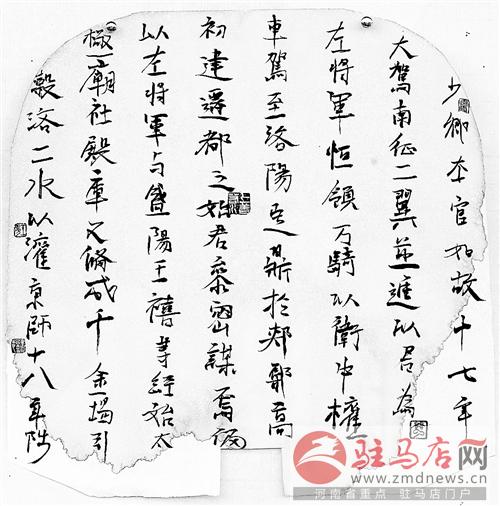 少卿本官如故十七年
大駕南征二翼並進以君為
左將軍恒領万騎以衛中權
車駕至洛陽定鼎於郟鄏高
初建遷都之始君參密謀焉仍
以左將軍与咸陽王禧等經始太
極廟社殿庫又脩成千金堨引
穀洛二水以灌京師十八年陟
驻马店网
www.zmdnews.cn
河南省重点 驻马店门户